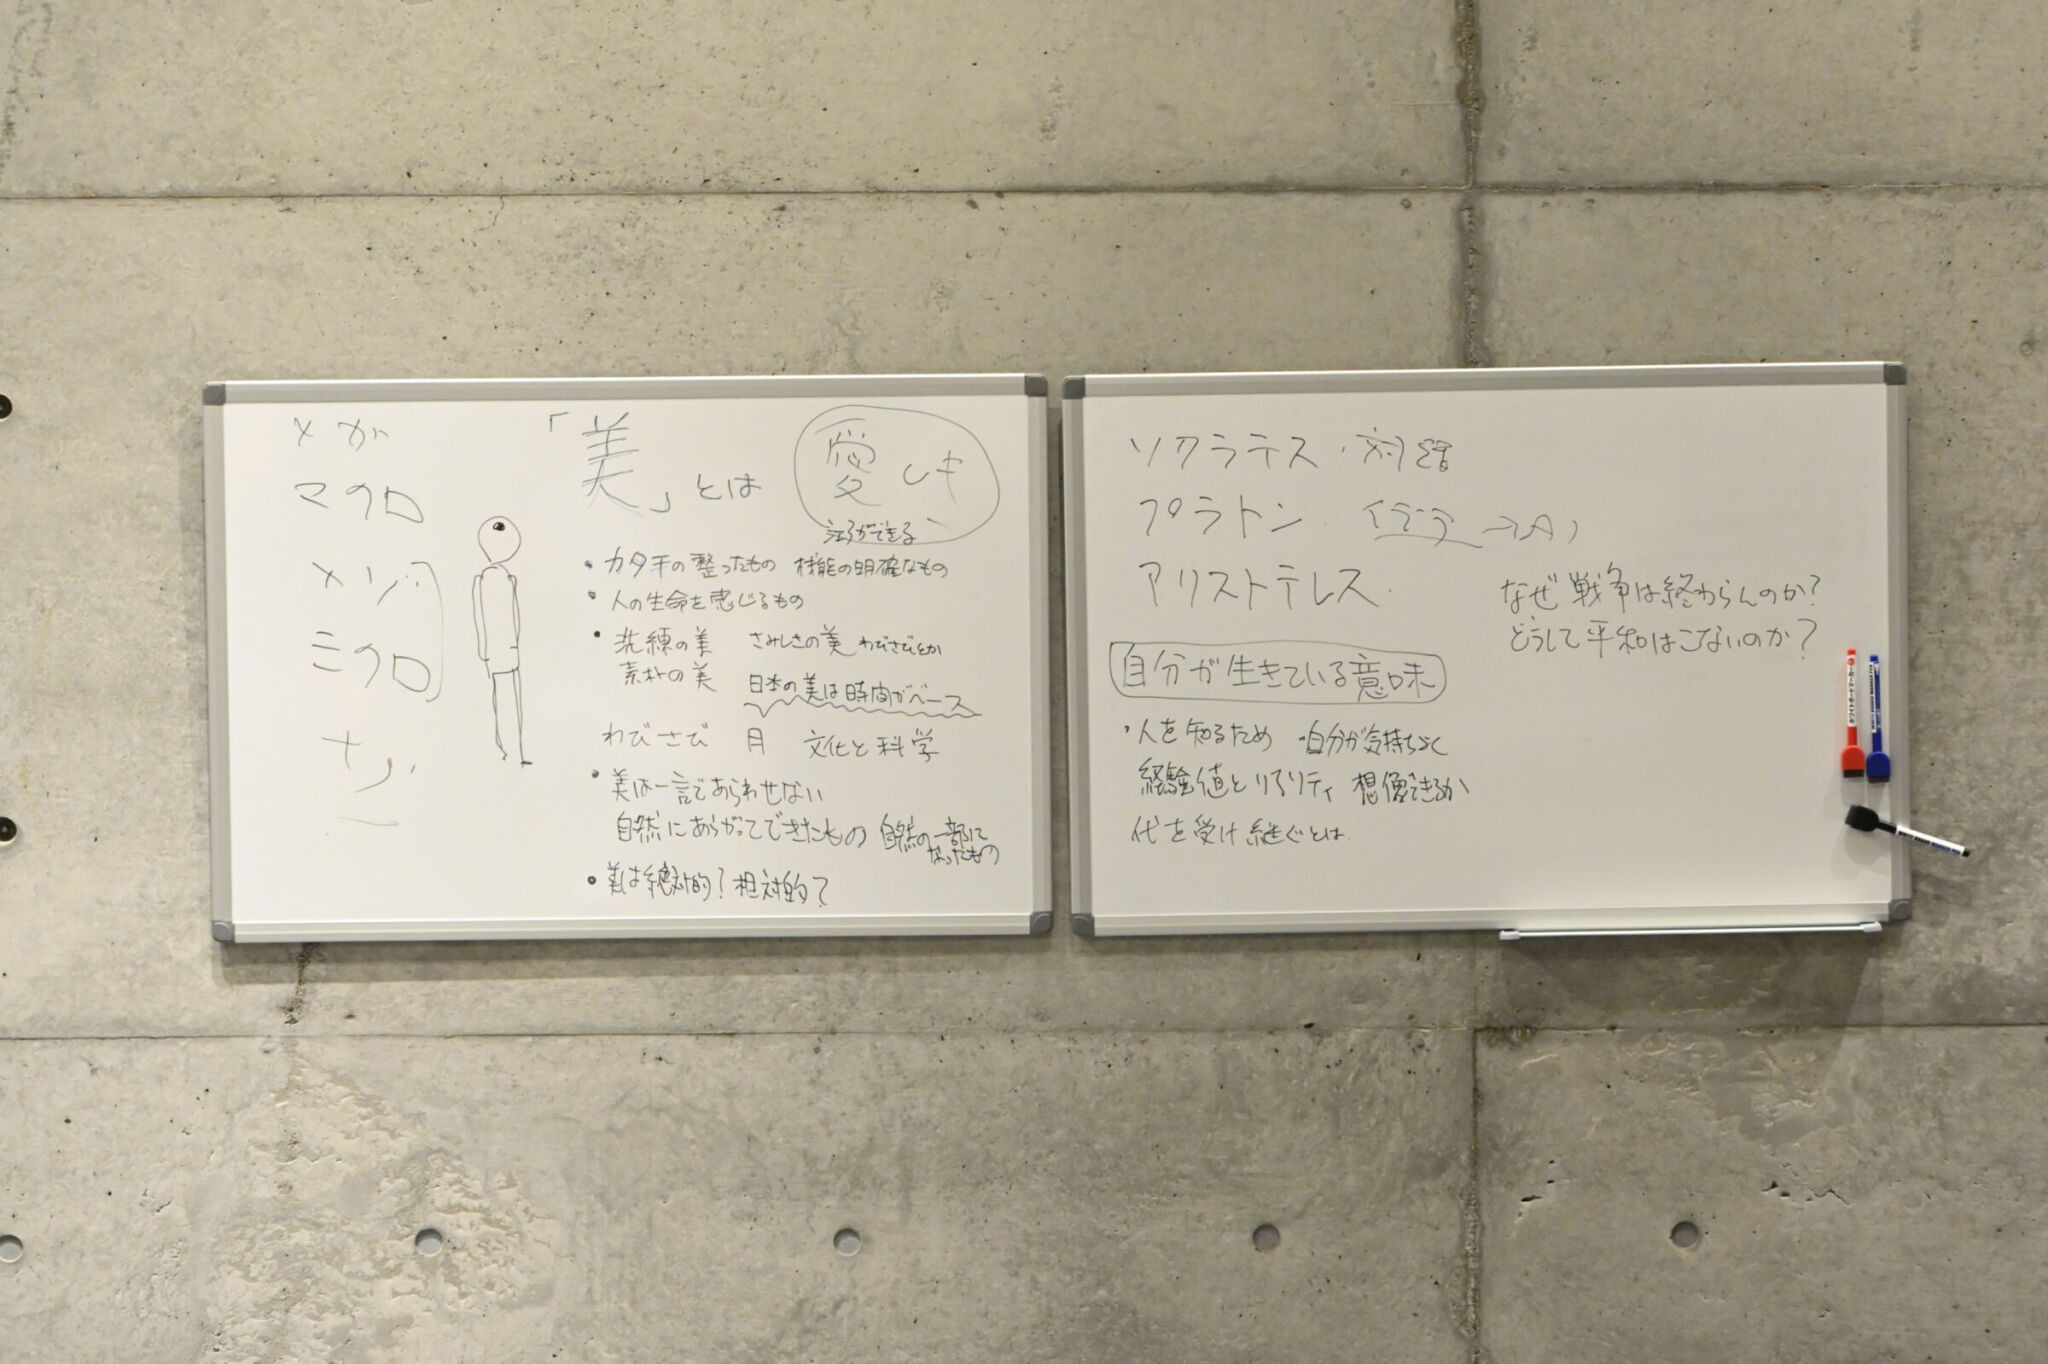 メガ
マクロ
メゾ
ミクロ
ナノ
「美」とは
愛
ができる
・カタチの整ったもの 機能の明確なもの
・人の生命を感じるもの
・洗練の美 さみしさの美 わびさびとか
素朴の美
日本の美は時間がベース
わびさび 月 文化と科学
・美は一言であらわせない
自然にあらがってできたもの 自然の一部に
なったもの
・美は絶対的？相対的？
ソクラテス・対話
プラトン イデア
アリストテレス
なぜ戦争は終わらんのか？
どうして平和はこないのか？
自分が生きている意味
・人を知るため ・自分が気持ちよく
経験値とリアリティ 想像できるか
代を受け継ぐとは